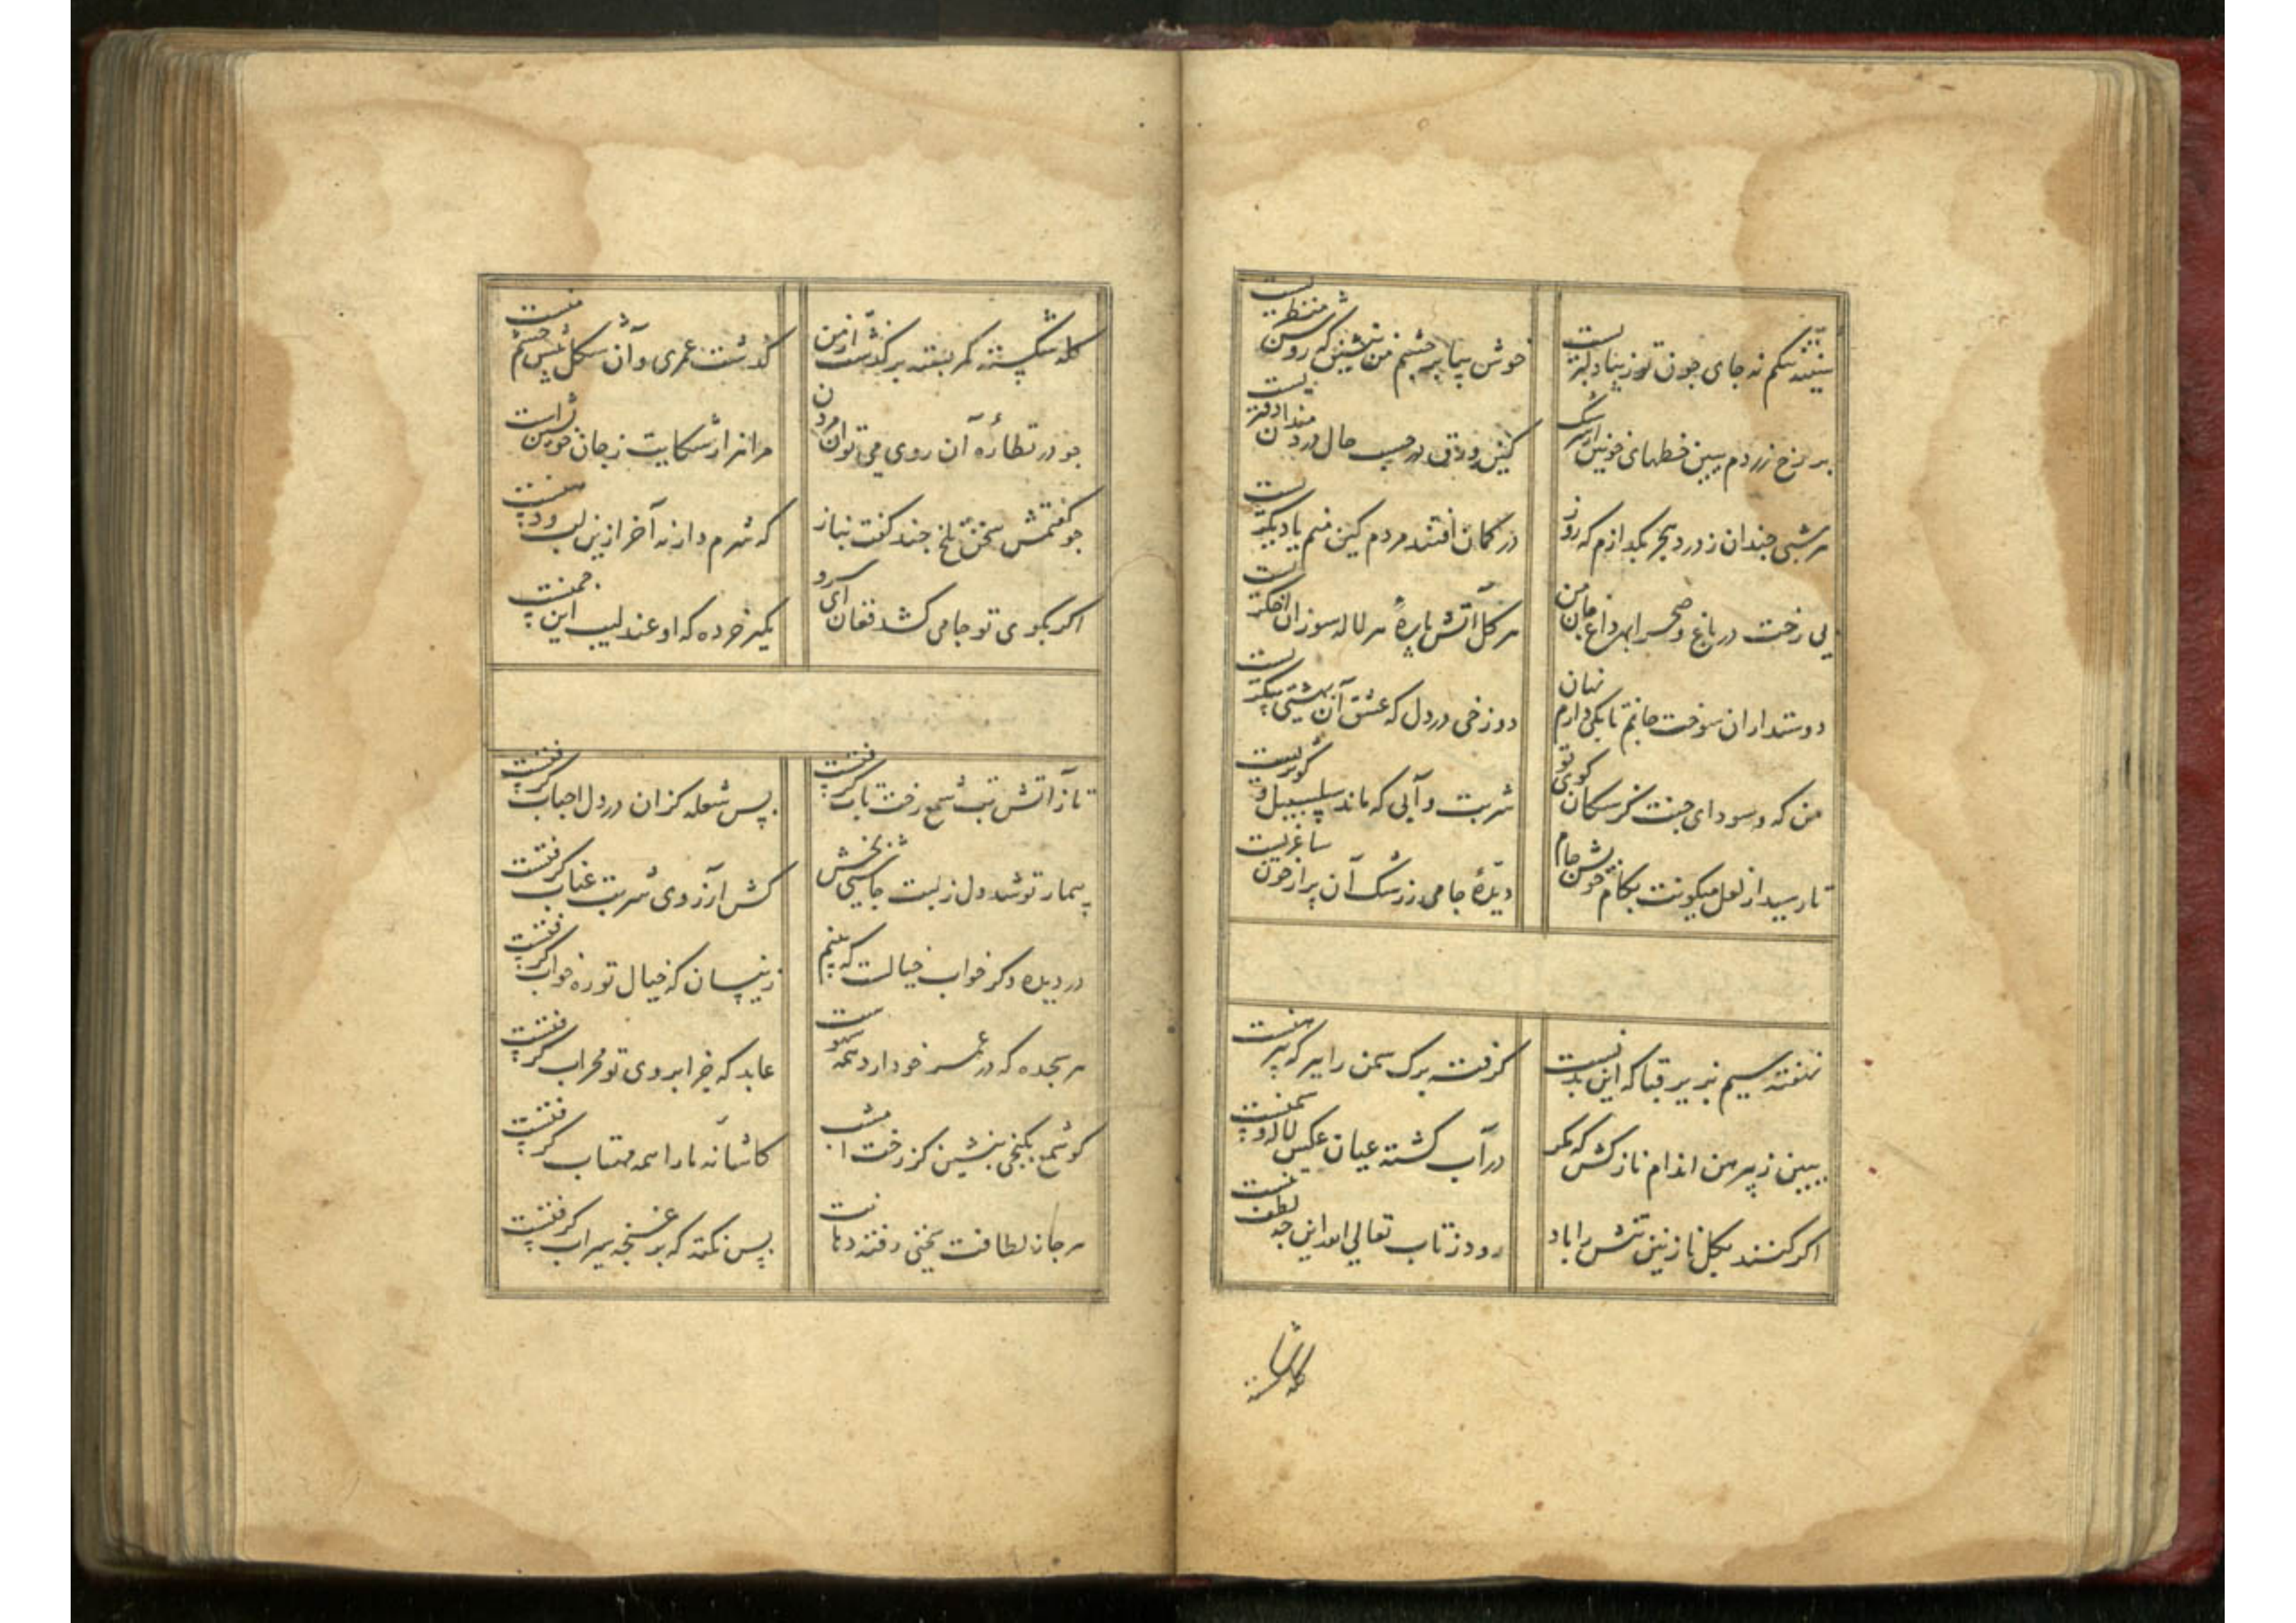 سینه تنگم نه جای چون تو زیبا دلبریست
خوش بیا بر چشم من بنشین که روشن منظریست
بر رخ زردم ببین خطهای خونین از سرشک
کین ورق در حسب حال دردمندان دفتریست
هر شبی چندان ز درد هجر بگدازم که روز
در گمان افتند مردم کین منم یا دیگریست
بی رخت در باغ و صحرا بهر داغ جان من
هر گل آتش پارهٔ هر لاله سوزان اخگریست
دوستداران سوخت جانم تا بکی دارم نهان
دوزخی در دل که عشق آن بهشتی پیکریست
من که و سودای جنت کز سگان کوی تو
شربت و آبی که ماند سلسبیل و کوثریست
تا رسید از لعل میگونت بکام خویش جام
دیدهٔ جامی ز رشک آن پر از خون ساغریست
نهفته سیم بزیر قبا که این بدنست
گرفته برگ سمن را ببر که پیرهنست
ببین ز پیرهن اندام نازکش که مگر
در آب گشته عیان عکس لاله و سمنست
اگر کنند بگل نازنین تنش را یاد
رود ز تاب تعالی الله این چه لطف تنست
کله شکسته
کله شکسته کمر بسته بر گذشت از من
گذشت عمری و آن شکل پیش چشم منست
چو در نظارهٔ آن روی می توان مردن
مرا هزار شکایت ز جان خویشتن است
چو گفتمش سخن تلخ چند گفت بناز
که شرم دار نه آخر ازین لب و دهنست
اگر بکوی تو جامی کشد فغان ای سرو
مگیر خرده که او عندلیب این چمنست
تا ز آتش تب شمع رخت تاب گرفتست
بس شعله کزان در دل احباب گرفتست
بیمار تو شد دل ز لبت چاشنیی بخش
کش آرزوی شربت عناب گرفتست
در دیده دگر خواب خیالست که بینم
زینسان که خیال تو ره خواب گرفتست
هر سجده که در عمر خود آرد همه سهوست
عابد که جز ابروی تو محراب گرفتست
گو شمع بکنجی بنشین کز رخت امشب
کاشانه ما را همه مهتاب گرفتست
هر جا ز لطافت سخنی رفته دهانت
بس نکته که بر غنچه سیراب گرفتست